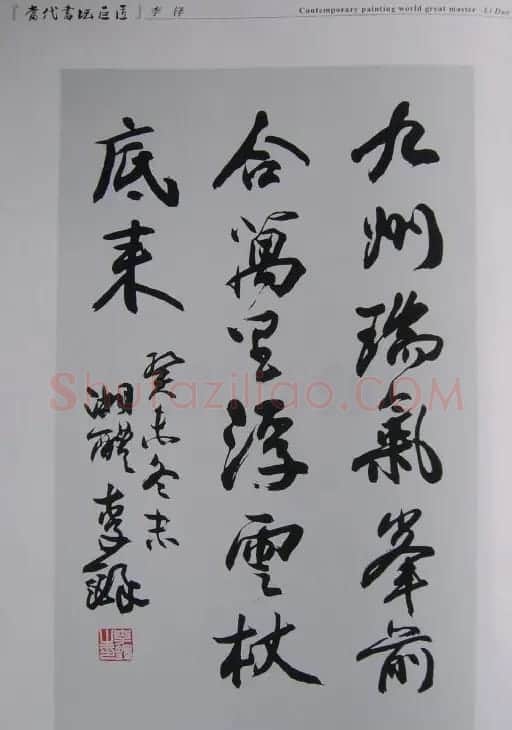 『当代书坛巨匠』李铎
Contemporary painting world great master Li Duo
九州瑞氣峯前
合萬里浮雲杖
底来
癸未冬末
湖醴李鐸
Shufaziliao.com